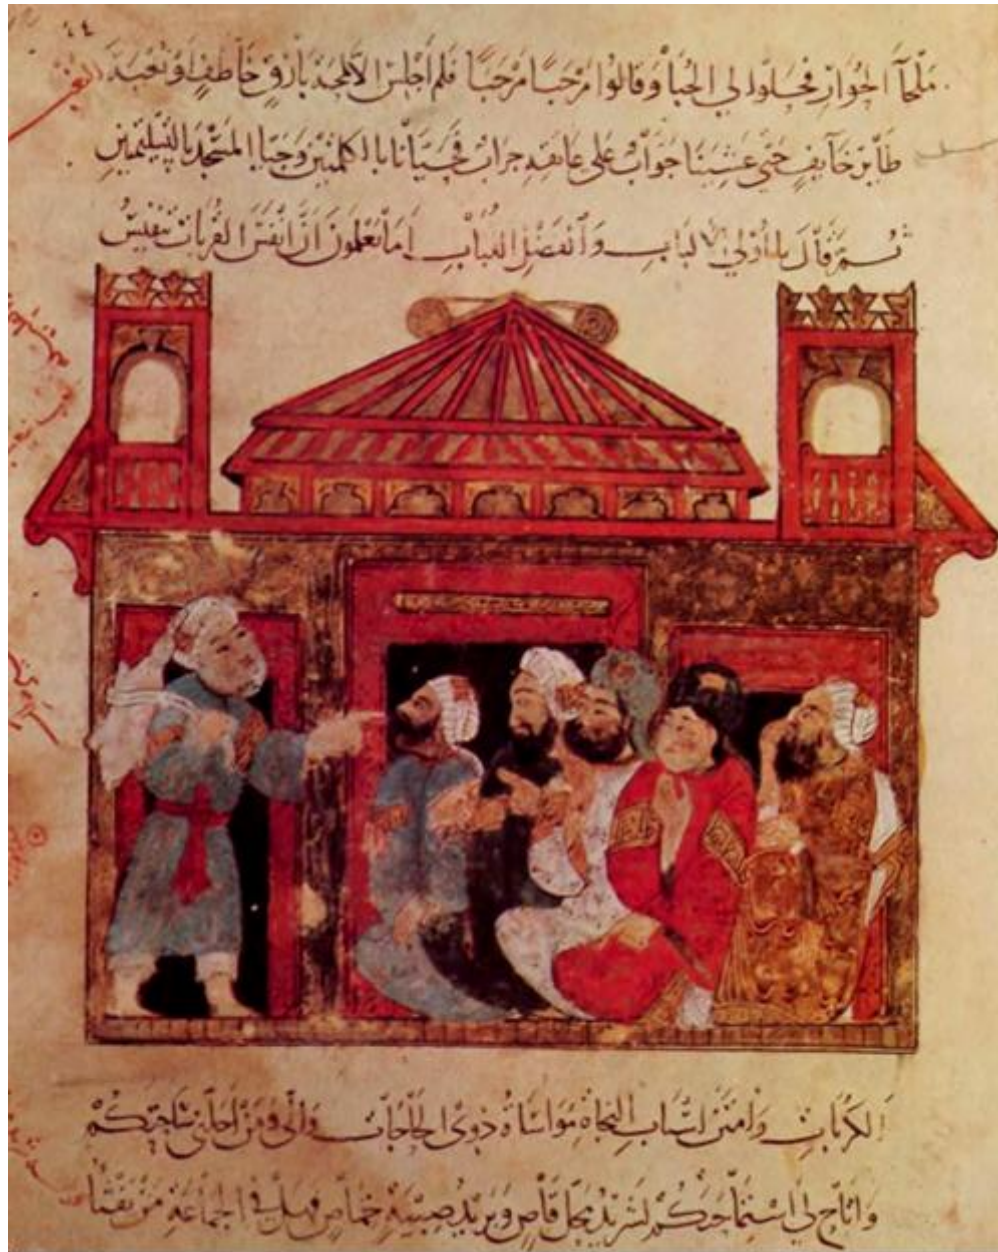 مُلَحاً الحِوار فحلّوا لي الحُبَا وقالوا مَرْحَبًا مَرْحَبًا فلم أجلس إلا لمحة بارق خاطف أو نغبة
طائر خائف حتى غشينا جواب على عاتقه جراب فحيّانا بالكلمتين وحيا المسجد بالتسليمتين
ثم قال يا أولي الألباب والفضل اللباب أما تعلمون أن أنفس القربات تنفيس
الكربات وامتن أسباب النجاة مواساة ذوي الحاجات وإني ومن أحلني ساحتكم
وأتاح لي استماحتكم لشريد محل قاص وبريد صبية خماص فهل في الجماعة من يفثأ